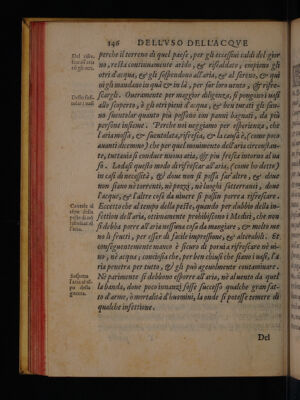 146 DELL'VSO DELL'ACQVE
perche il terreno di quel paese, per gli eccessiui caldi del gior
no, resta continuamente arido, & riscaldato, empiono gli
otri d'acqua, & gli sospendono all'aria, & al sereno, & qui
ui gli mandano in quà & in là, per far loro uento, & rifre-
scargli. Oueramente per maggior diligenza, si pongono i uasi
allo scoperto, è gli otri pieni d'acqua, & ben turati gli fan-
no suentolar quanto più possono con panni bagnati, da più
persone insieme. Perche noi ueggiamo per esperienza, che
l'aria mossa, & suentolata, rifresca, & la causa è, come poco
quanti dicemmo) che per quel mouimento dell'aria circonstan-
te, tuttauia si conduce nuoua aria, & più fresca intorno al ua
so. Lodasi questo modo di rifrescar all'aria, (come ho detto)
in casi di necessità, & doue non si possa far altro, & doue
non siano nè torrenti, nè pozzi, nè luoghi sotterranei, doue
l'acque, & l'altre cose da niuere si possin porre à rifrescare.
Eccetto che al tempo della peste, quando per dubbio della in-
fettion dell'aria, ottimamente prohibiscono i Medici, che non
si debba porre all'aria nessuna cosa da mangiare, & molto me
no li frutti, per esser di facile impressione, & alterabili. Et
conseguentemente manco è sicuro di porui à rifrescare nè ui-
no, nè acqua, conciosia che, per ben chiusi che siano i uasi, l'a
ria penetra per tutto, & gli può ageuolmente contaminare.
Nè parimente si debbono esporre all'aria, nè al uento da quel
la banda, doue poco innanzi fosse successo qualche gran fat-
to d'arme, ò mortalità d'huomini, la onde si potesse temere di
qualche infettione.
Del
Del rifre-
l'aria
peste
l'aria.
Sospetto
l'aria al tē
po della
guerra.